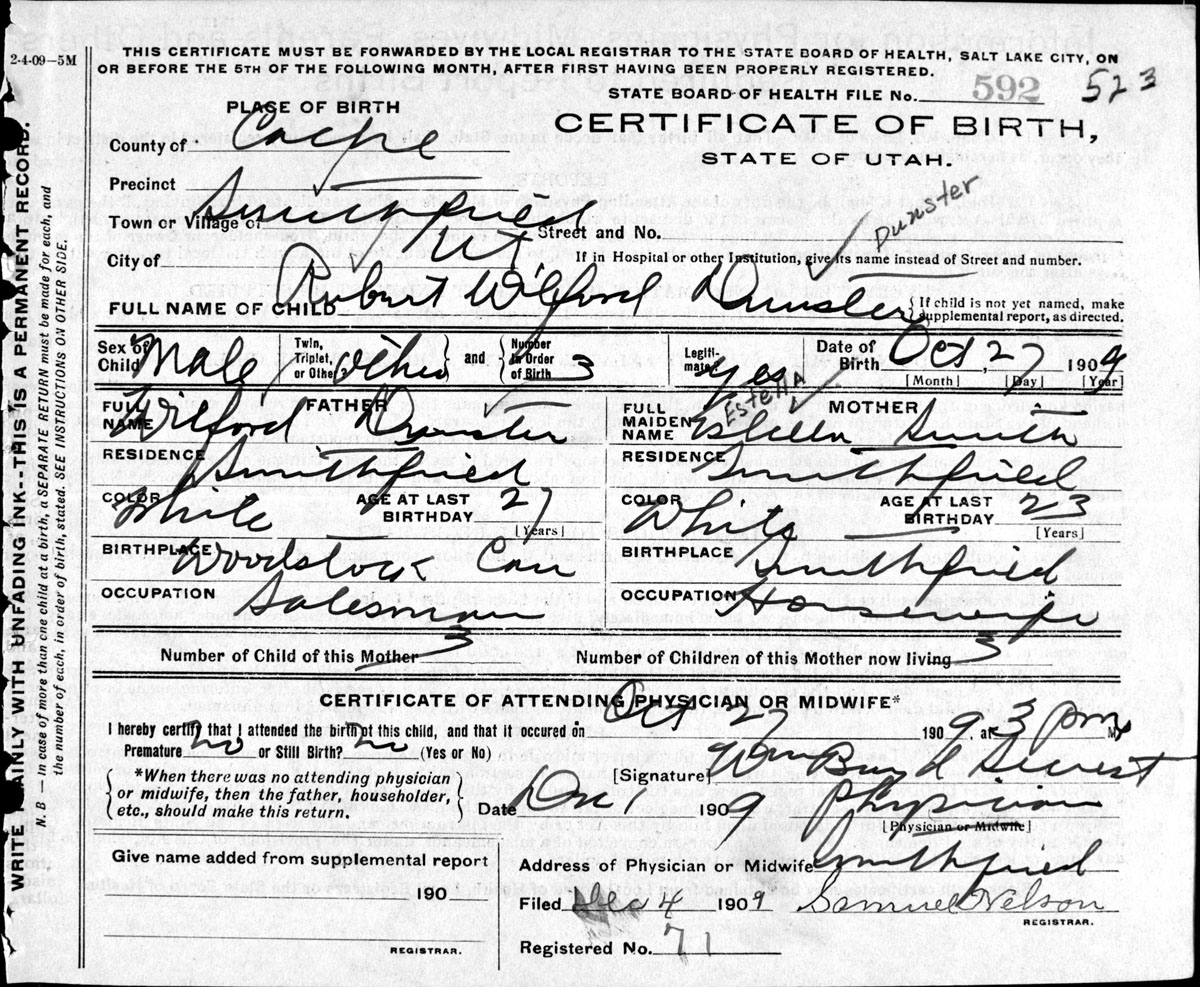 2-4-09—5M
THIS CERTIFICATE MUST BE FORWARDED BY THE LOCAL REGISTRAR TO THE STATE BOARD OF HEALTH, SALT LAKE CITY, ON
OR BEFORE THE 5TH OF THE FOLLOWING MONTH, AFTER FIRST HAVING BEEN PROPERLY REGISTERED.
STATE BOARD OF HEALTH FILE No. 592 523
PLACE OF BIRTH
CERTIFICATE OF BIRTH,
STATE OF UTAH.
County of Cache
Precinct
Town or Village of Smithfield
Street and No.
Dunster
City of Ut
If in Hospital or other Institution, give its name instead of Street and number.
FULL NAME OF CHILD Robert Wilford Dunster
{If child is not yet named, make supplemental report, as directed.
Sex of Child Male
Twin, Triplet, or Other? and Number in Order of Birth 3
Legitimate? Yes
Date of Birth Oct, 27 1909
[Month] [Day] [Year]
FATHER
FULL NAME Wilford Dunster
RESIDENCE Smithfield
COLOR White
AGE AT LAST BIRTHDAY 27
[Years]
BIRTHPLACE Woodstock Can
OCCUPATION Salesman
MOTHER
Estella
FULL MAIDEN NAME Smith
RESIDENCE Smithfield
COLOR White
AGE AT LAST BIRTHDAY 23
[Years]
BIRTHPLACE Smithfield
OCCUPATION Housewife
Number of Child of this Mother 3
Number of Children of this Mother now living 3
CERTIFICATE OF ATTENDING PHYSICIAN OR MIDWIFE*
I hereby certify that I attended the birth of this child, and that it occured on Oct 27 1909, at 3 pm M
Premature no or Still Birth? no (Yes or No)
*When there was no attending physician
or midwife, then the father, householder,
etc., should make this return.
[Signature] Wm
Date 1909 Physician
[Physician or Midwife]
Give name added from supplemental report
190
REGISTRAR.
Address of Physician or Midwife Smithfield
Filed Dec 4 1909 Samuel Nelson
REGISTRAR.
Registered No. 71
WRITE PLAINLY WITH UNFADING INK--THIS IS A PERMANENT RECORD.
N. B.—In case of more than one child at a birth, a SEPARATE RETURN must be made for each, and
the number of each, in order of birth, stated. SEE INSTRUCTIONS ON OTHER SIDE.